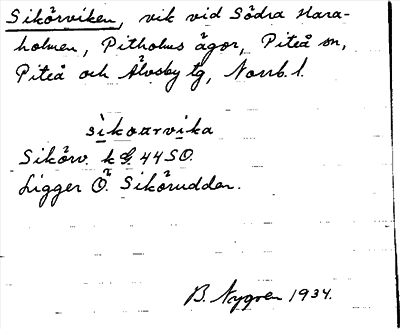 Sikörviken, vik vid Södra Hara-
holmen, Pitholms ägor, Piteå sn,
Piteå och Älvsby tg, Norrb. l.
sìkoarvika
Sikörv. k G. 44 SO.
Ligger Ö. Sikörudden.
B. Nygren 1934.